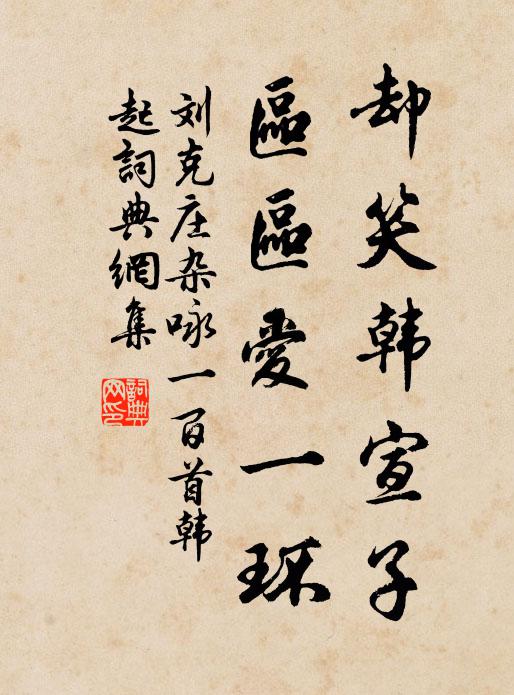 却笑韩宣子
區區愛一环
刘克庄杂咏一百首韩
起詞典網集
詞典网印